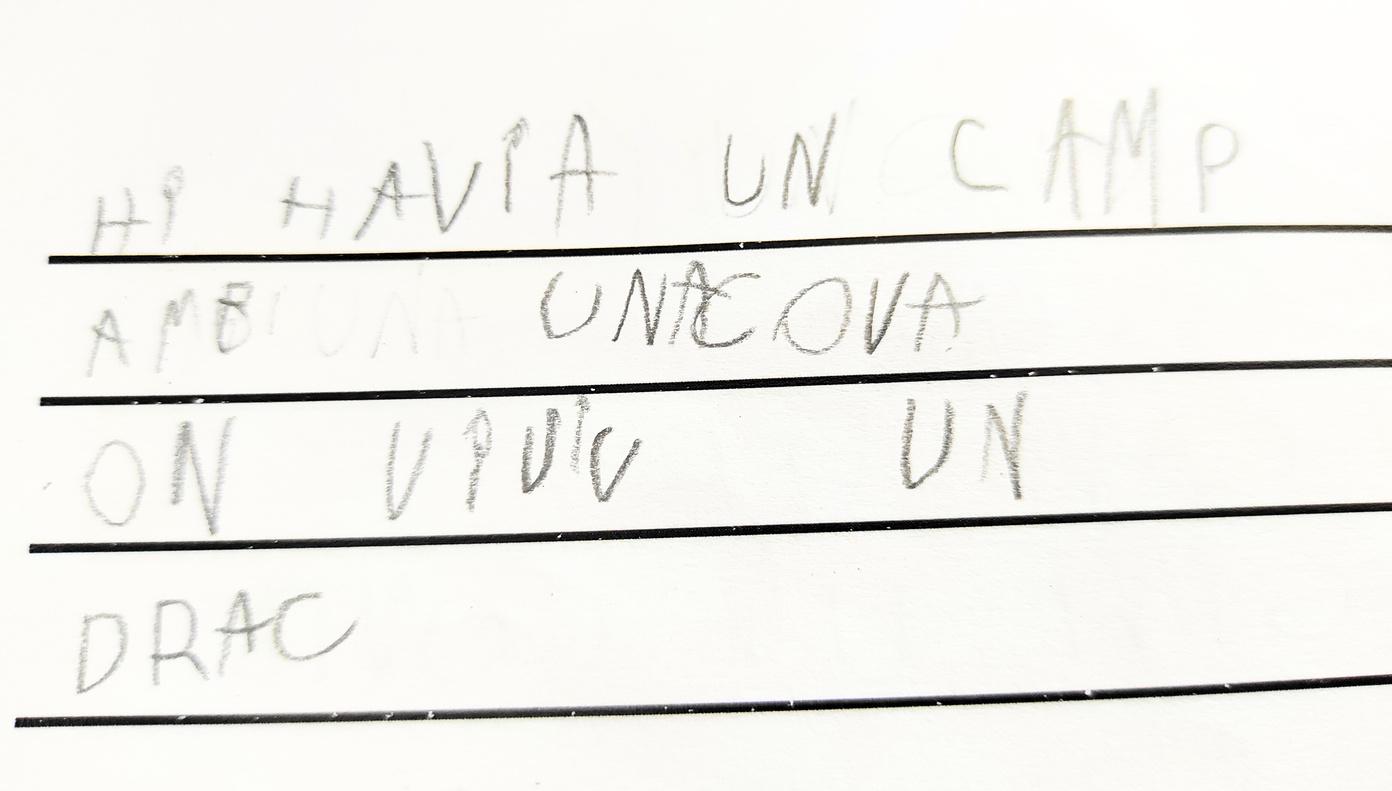 HI HAVIA UN CAMP
AMB UNA COVA
ON UN
DRAC